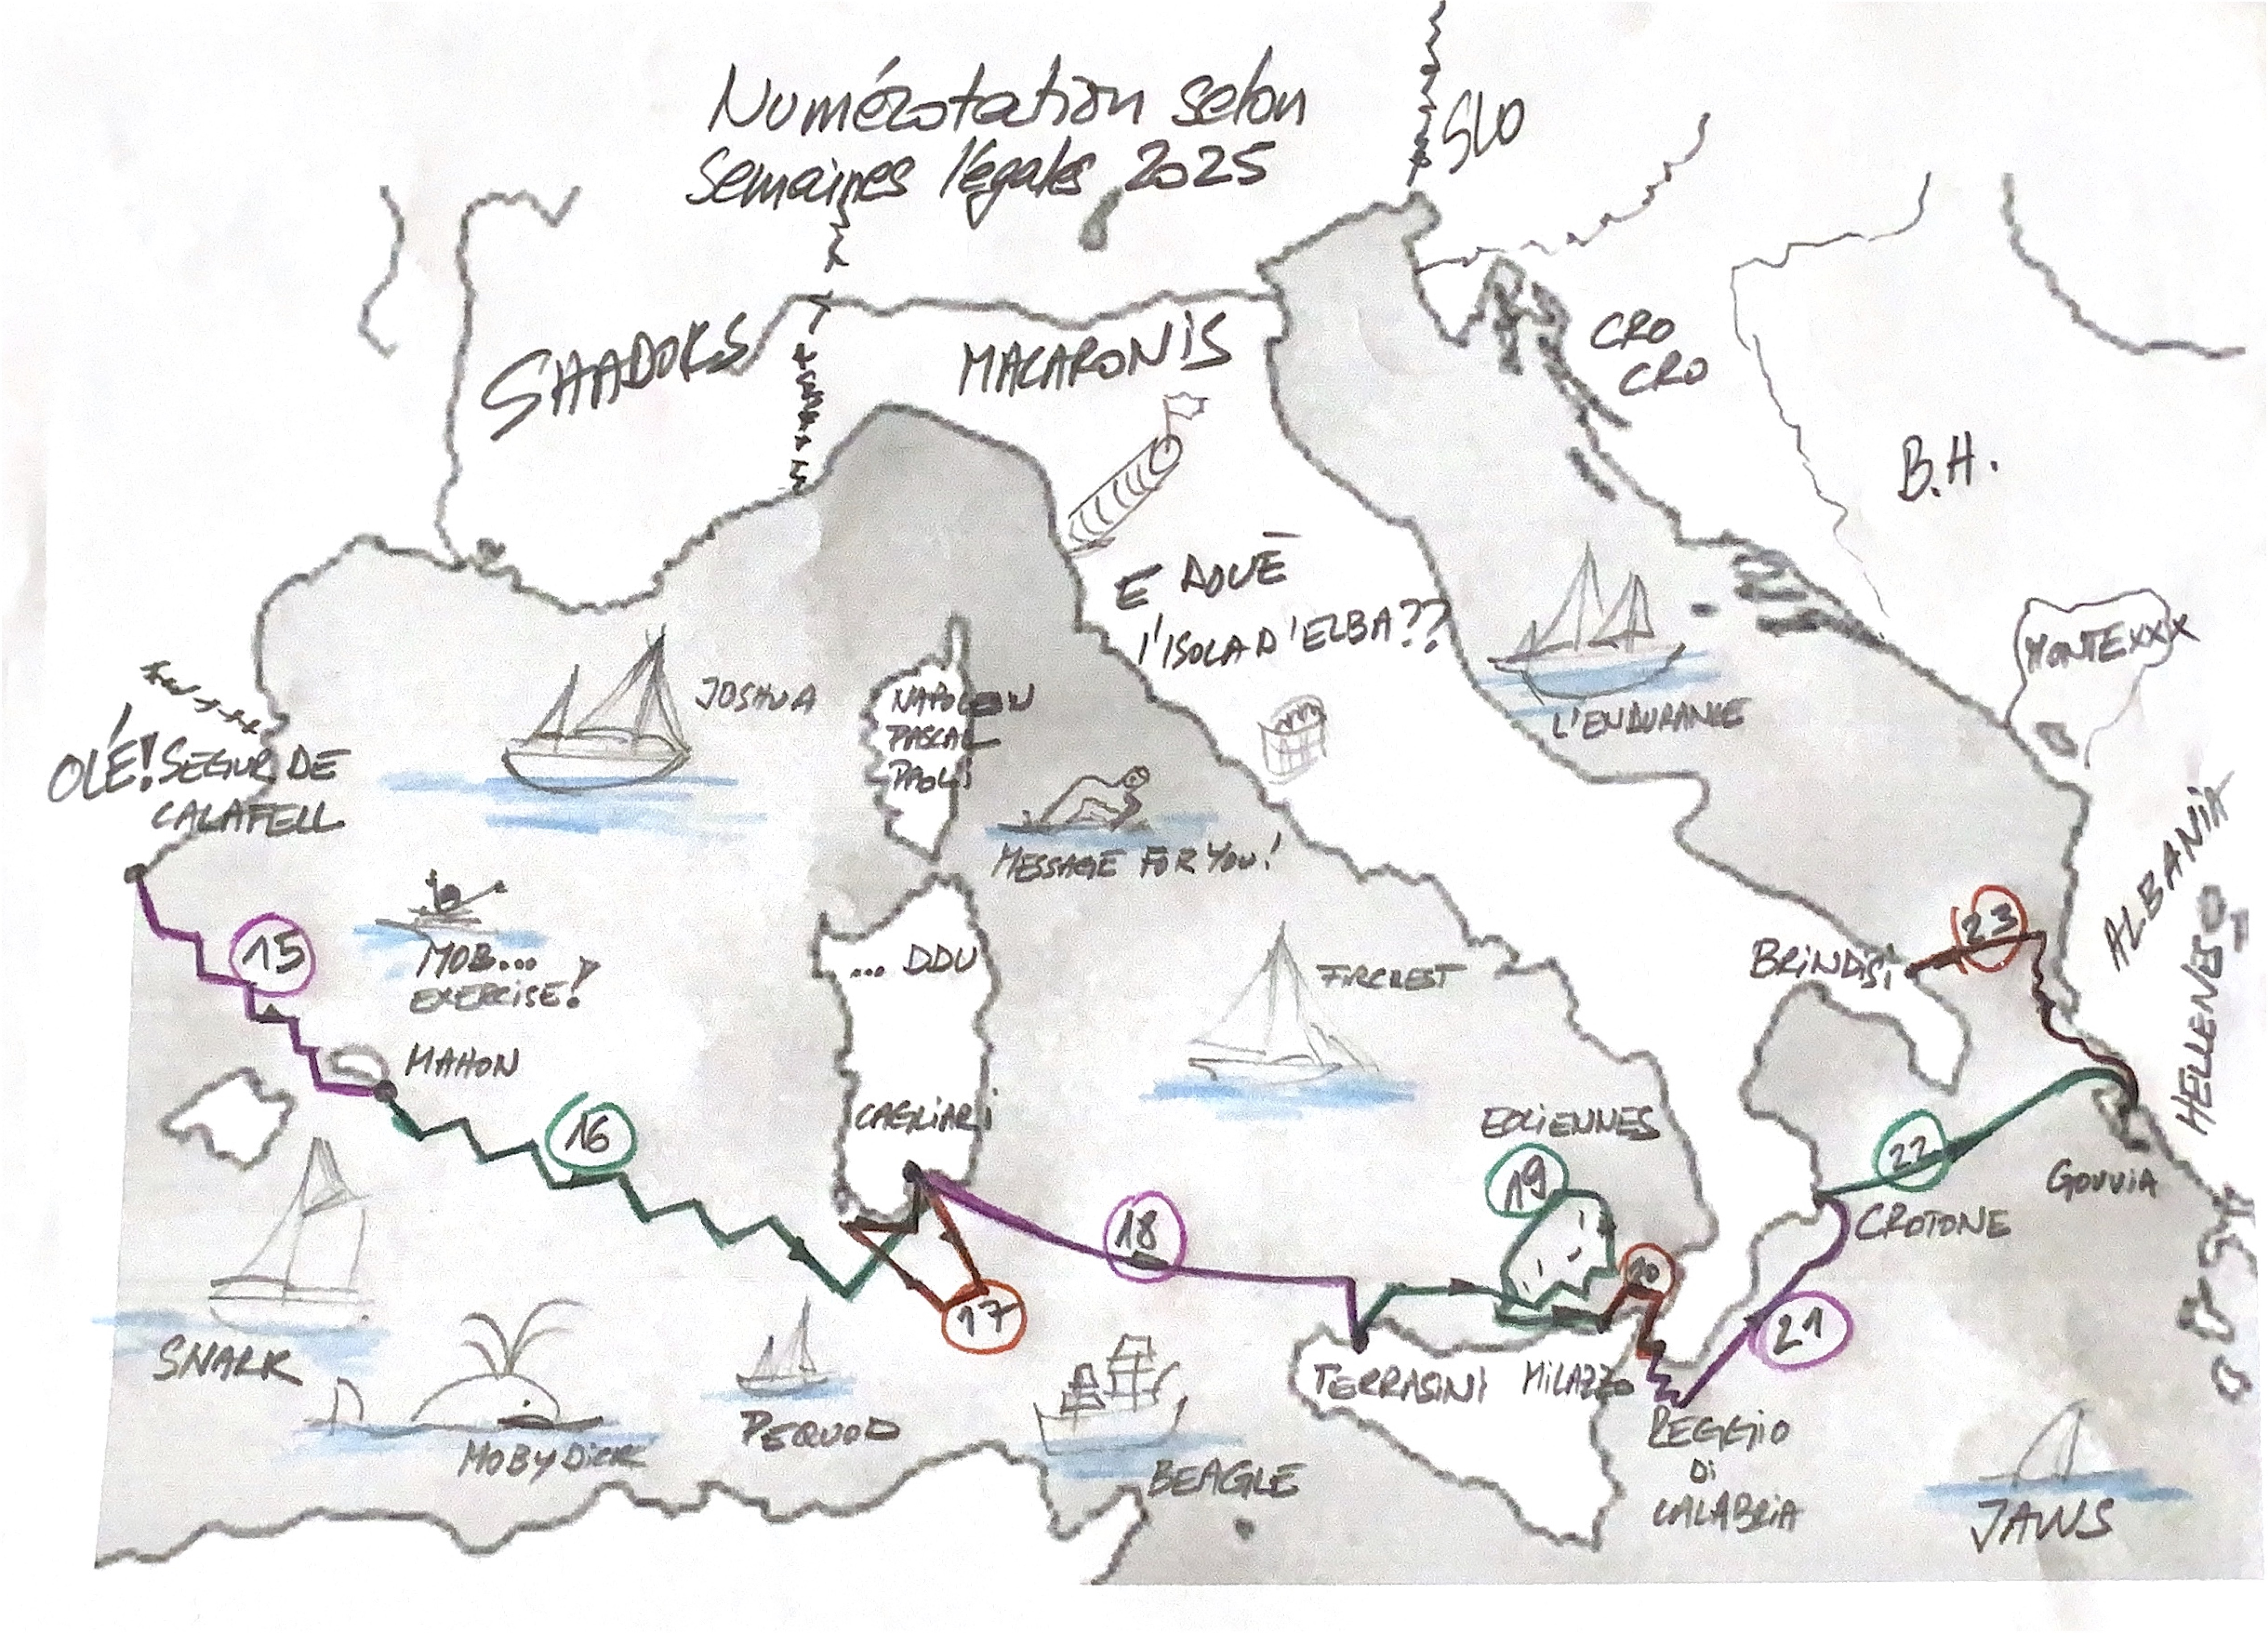 Numérotation selon
semaines légales 2025
SLO
SHADOKS
MACARONIS
CRO
CRO
B.H.
E DOVE
l'ISOLA D'ELBA??
MONTExxx
JOSHUA
NAPOLEON
PASCAL
PAOLI
L'ENDURANCE
OLÉ! SEGUR DE
CALAFELL
MESSAGE FOR YOU!
ALBANIA
15
MOB...
EXERCISE!
... DDU
FIRCREST
BRINDISI
23
HELLENES
MAHON
16
CAGLIARI
EOLIENNES
19
22
GOUVIA
CROTONE
18
20
17
21
SNARK
TERRASINI
MILAZZO
MOBY DICK
PEQUOD
BEAGLE
REGGIO
Di
CALABRIA
JAWS